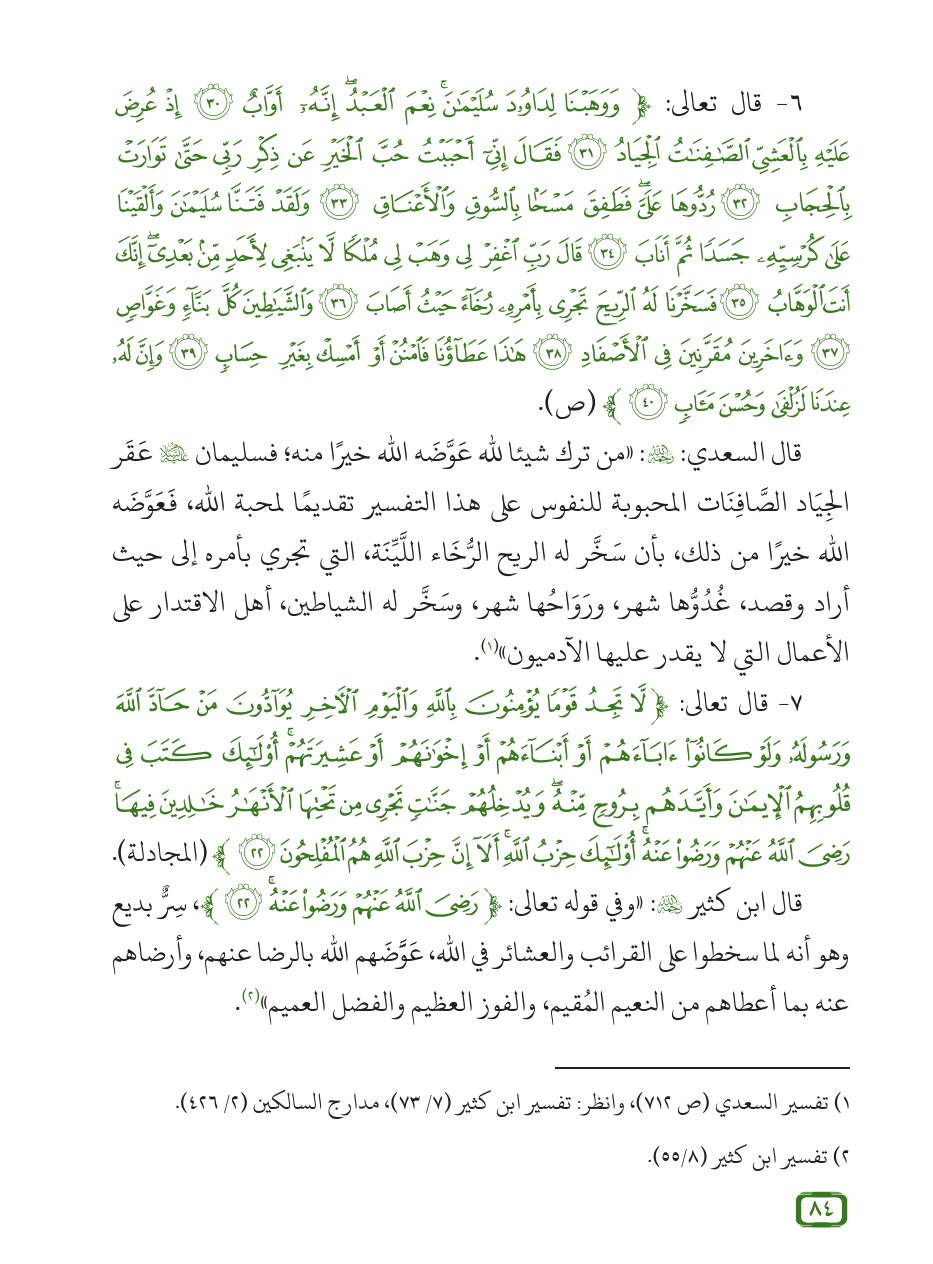 ٦- قال تعالى: ﴿ وَوَهَبْنَا لِدَاوُۥدَ سُلَيْمَٰنَۚ نِعْمَ ٱلْعَبْدُۖ إِنَّهُۥٓ أَوَّابٌ ٣٠ إِذْ عُرِضَ
عَلَيْهِ بِٱلْعَشِىِّ ٱلصَّٰفِنَٰتُ ٱلْجِيَادُ ٣١ فَقَالَ إِنِّىٓ أَحْبَبْتُ حُبَّ ٱلْخَيْرِ عَن ذِكْرِ رَبِّى حَتَّىٰ تَوَارَتْ
بِٱلْحِجَابِ ٣٢ رُدُّوهَا عَلَىَّۖ فَطَفِقَ مَسْحًۢا بِٱلسُّوقِ وَٱلْأَعْنَاقِ ٣٣ وَلَقَدْ فَتَنَّا سُلَيْمَٰنَ وَأَلْقَيْنَا
عَلَىٰ كُرْسِيِّهِۦ جَسَدًا ثُمَّ أَنَابَ ٣٤ قَالَ رَبِّ ٱغْفِرْ لِى وَهَبْ لِى مُلْكًا لَّا يَنۢبَغِى لِأَحَدٍ مِّنۢ بَعْدِىٓۖ إِنَّكَ
أَنتَ ٱلْوَهَّابُ ٣٥ فَسَخَّرْنَا لَهُ ٱلرِّيحَ تَجْرِى بِأَمْرِهِۦ رُخَآءً حَيْثُ أَصَابَ ٣٦ وَٱلشَّيَٰطِينَ كُلَّ بَنَّآءٍ وَغَوَّاصٍ
٣٧ وَءَاخَرِينَ مُقَرَّنِينَ فِى ٱلْأَصْفَادِ ٣٨ هَٰذَا عَطَآؤُنَا فَٱمْنُنْ أَوْ أَمْسِكْ بِغَيْرِ حِسَابٍ ٣٩ وَإِنَّ لَهُۥ
عِندَنَا لَزُلْفَىٰ وَحُسْنَ مَـَٔابٍ ٤٠ ﴾ (ص).
قال السعدي: رحمه الله: «من ترك شيئا لله عَوَّضَه الله خيرًا منه؛ فسليمان عليه السلام عَقَر
الجِيَاد الصَّافِنَات المحبوبة للنفوس على هذا التفسير تقديمًا لمحبة الله، فَعَوَّضَه
الله خيرًا من ذلك، بأن سَخَّر له الريح الرُّخَاء اللَّيِّنَة، التي تجري بأمره إلى حيث
أراد وقصد، غُدُوُّها شهر، ورَوَاحُها شهر، وسَخَّر له الشياطين، أهل الاقتدار على
الأعمال التي لا يقدر عليها الآدميون»(١).
٧- قال تعالى: ﴿ لَّا تَجِدُ قَوْمًا يُؤْمِنُونَ بِٱللَّهِ وَٱلْيَوْمِ ٱلْءَاخِرِ يُوَآدُّونَ مَنْ حَآدَّ ٱللَّهَ
وَرَسُولَهُۥ وَلَوْ كَانُوٓا۟ ءَابَآءَهُمْ أَوْ أَبْنَآءَهُمْ أَوْ إِخْوَٰنَهُمْ أَوْ عَشِيرَتَهُمْۚ أُو۟لَٰٓئِكَ كَتَبَ فِى
قُلُوبِهِمُ ٱلْإِيمَٰنَ وَأَيَّدَهُم بِرُوحٍ مِّنْهُۖ وَيُدْخِلُهُمْ جَنَّٰتٍ تَجْرِى مِن تَحْتِهَا ٱلْأَنْهَٰرُ خَٰلِدِينَ فِيهَاۚ
رَضِىَ ٱللَّهُ عَنْهُمْ وَرَضُوا۟ عَنْهُۚ أُو۟لَٰٓئِكَ حِزْبُ ٱللَّهِۚ أَلَآ إِنَّ حِزْبَ ٱللَّهِ هُمُ ٱلْمُفْلِحُونَ ٢٢ ﴾ (المجادلة).
قال ابن كثير رحمه الله: «وفي قوله تعالى: ﴿ رَضِىَ ٱللَّهُ عَنْهُمْ وَرَضُوا۟ عَنْهُۚ ٢٢ ﴾، سِرٌّ بديع
وهو أنه لما سخطوا على القرائب والعشائر في الله، عَوَّضَهم الله بالرضا عنهم، وأرضاهم
عنه بما أعطاهم من النعيم المُقيم، والفوز العظيم والفضل العميم»(٢).
١) تفسير السعدي (ص ٧١٢)، وانظر: تفسير ابن كثير (٧/ ٧٣)، مدارج السالكين (٢/ ٤٢٦).
٢) تفسير ابن كثير (٨/ ٥٥).
٨٤